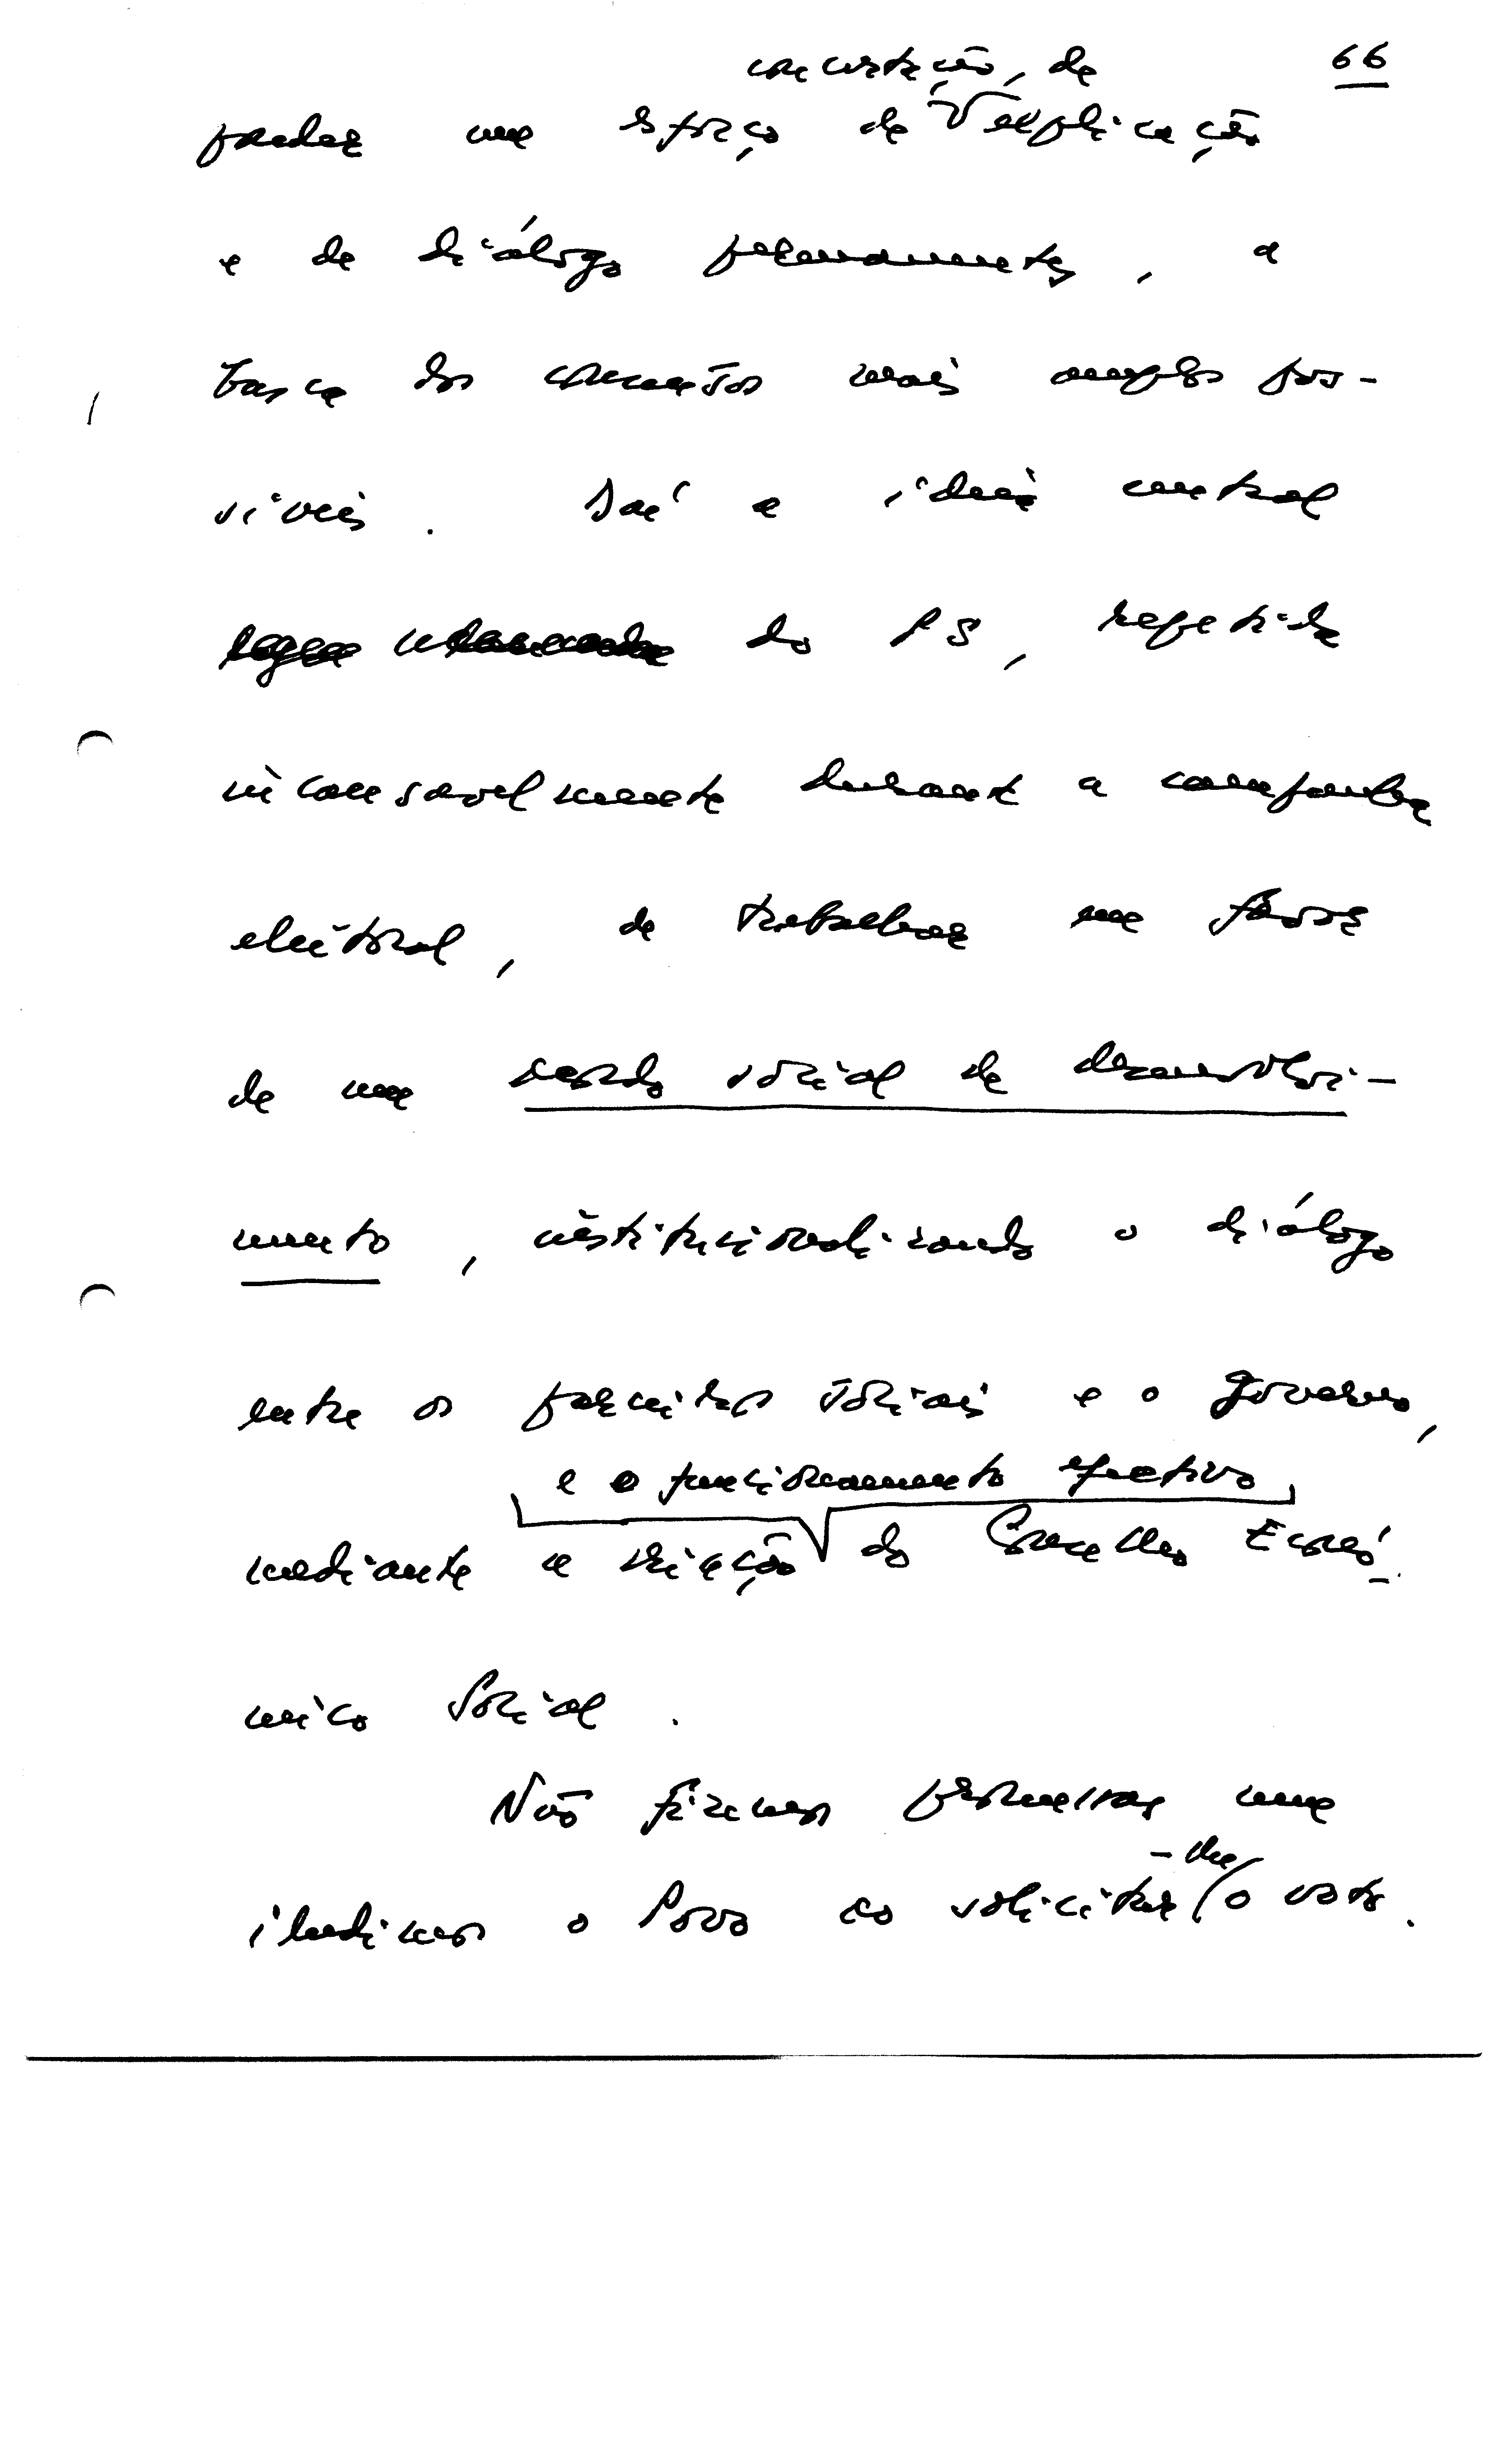 66
concertação, de
pender um esforço de explicação
e de diálogo permanentes, a
busca dos consensos mais amplos pos-
síveis. Daí a ideia central
do PS, repetida
incansavelmente durante a campanha
eleitoral, de trabalhar em favor
de um acordo social de desenvolvi-
mento, institucionalizando o diálogo
entre os parceiros sociais e o governo,
e o funcionamento efectivo
mediante a criação do Conselho Econó-
mico Social.
Não fizemos promessas nem
iludimos o Povo ao solicitar-lhe o voto.